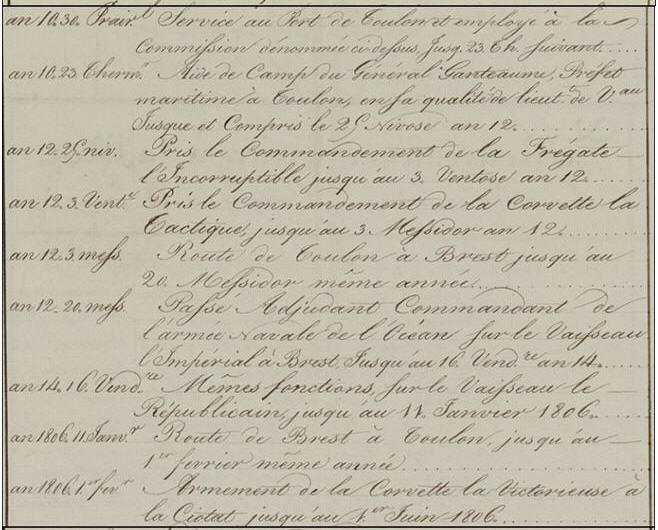 an 10. 30. Prair.l Service au Port de Toulon et employé à la
Commission dénommée ci dessus, Jusq. 23. Th. suivant....
an 10. 23. Therm.r Aide de Camp du Général Ganteaume, Préfet
maritime à Toulon, en sa qualité de lieut.t de V.au
Jusque et Compris le 25 Nivose an 12.
an 12. 25. niv. Pris le Commandement de la Frégate
l'Incorruptible jusqu'au 3. Ventose an 12.
an 12. 3. Vent.e Pris le Commandement de la Corvette la
Tactique, jusqu'au 3. Messidor an 12.
an 12. 3. mess. Route de Toulon à Brest jusqu'au
20. Messidor même année.
an 12. 20. mess. Passé Adjudant Commandant de
l'armée Navale de l'Océan sur le Vaisseau
l'Impérial à Brest, Jusqu'au 16. Vend.re an 14.
an 14. 16. Vend.re Mêmes fonctions, sur le Vaisseau le
Républicain, jusqu'au 11. Janvier 1806.
an 1806. 11. Janv.r Route de Brest à Toulon, jusqu'au
1.er fevrier même année.
an 1806. 1.er fev.r Armement de la Corvette la Victorieuse à
la Ciotat jusqu'au 1.er Juin 1806.